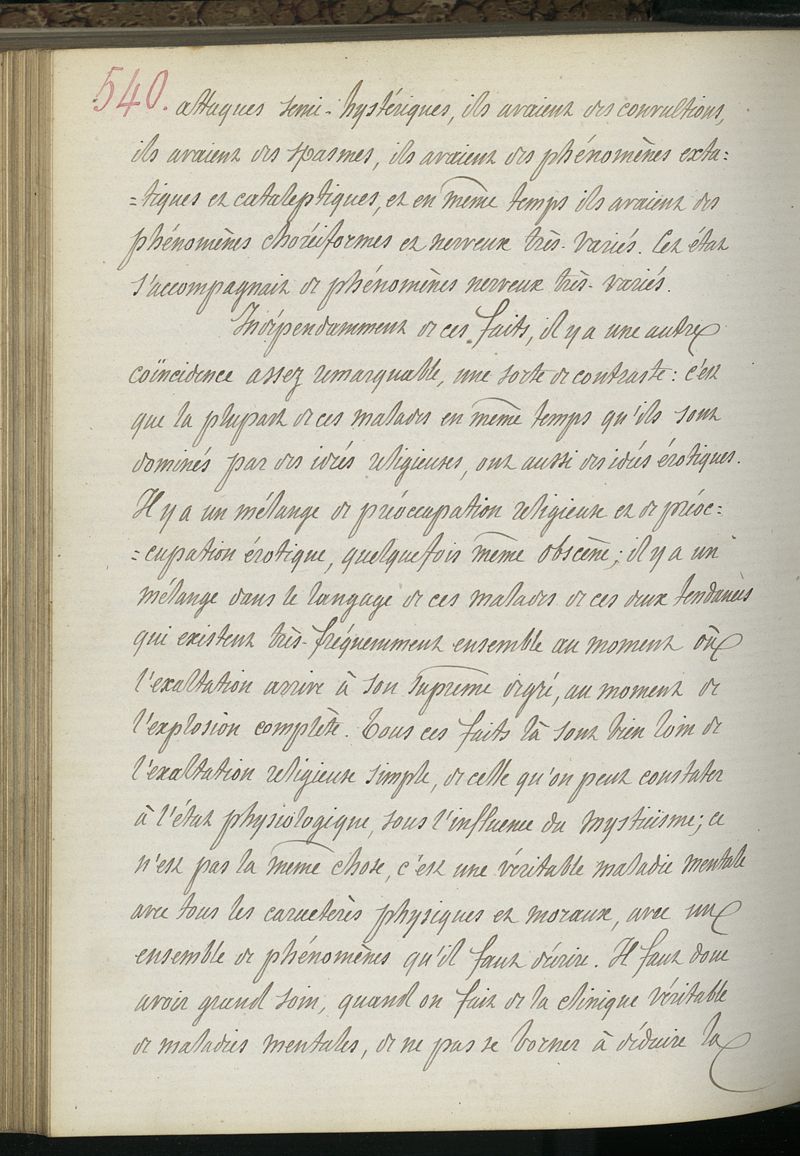 540. attaques semi-hystériques, ils avaient des convultions,
ils avaient des spasmes, ils avaient des phénomènes exta=
=tiques et cataleptiques, et en même temps ils avaient des
phénomènes choréiformes et nerveux très-variés. Cet état
s'accompagnait de phénomènes nerveux très-variés.
Indépendamment de ces faits, il y a une autre
coïncidence assez remarquable, une sorte de contraste: c'est
que la plupart de ces malades en même temps qu'ils sont
dominés par des idées religieuses, ont aussi des idées érotiques.
Il y a un mélange de préoccupation religieuse et de préoc=
=cupation érotique, quelquefois même obscène; il y a un
mélange dans le langage de ces malades de ces deux tendances
qui existent très-fréquemment ensemble au moment où
l'exaltation arrive à son suprême degré, au moment de
l'explosion complète. Tous ces faits là sont bien loin de
l'exaltation religieuse simple, de celle qu'on peut constater
à l'état physiologique, sous l'influence du mysticisme; ce
n'est pas la même chose, c'est une véritable maladie mentale
avec tous les caractères physiques et moraux, avec un
ensemble de phénomènes qu'il faut décrire. Il faut donc
avoir grand soin, quand on fait de la clinique véritable
de maladies mentales, de ne pas se borner à déduire la